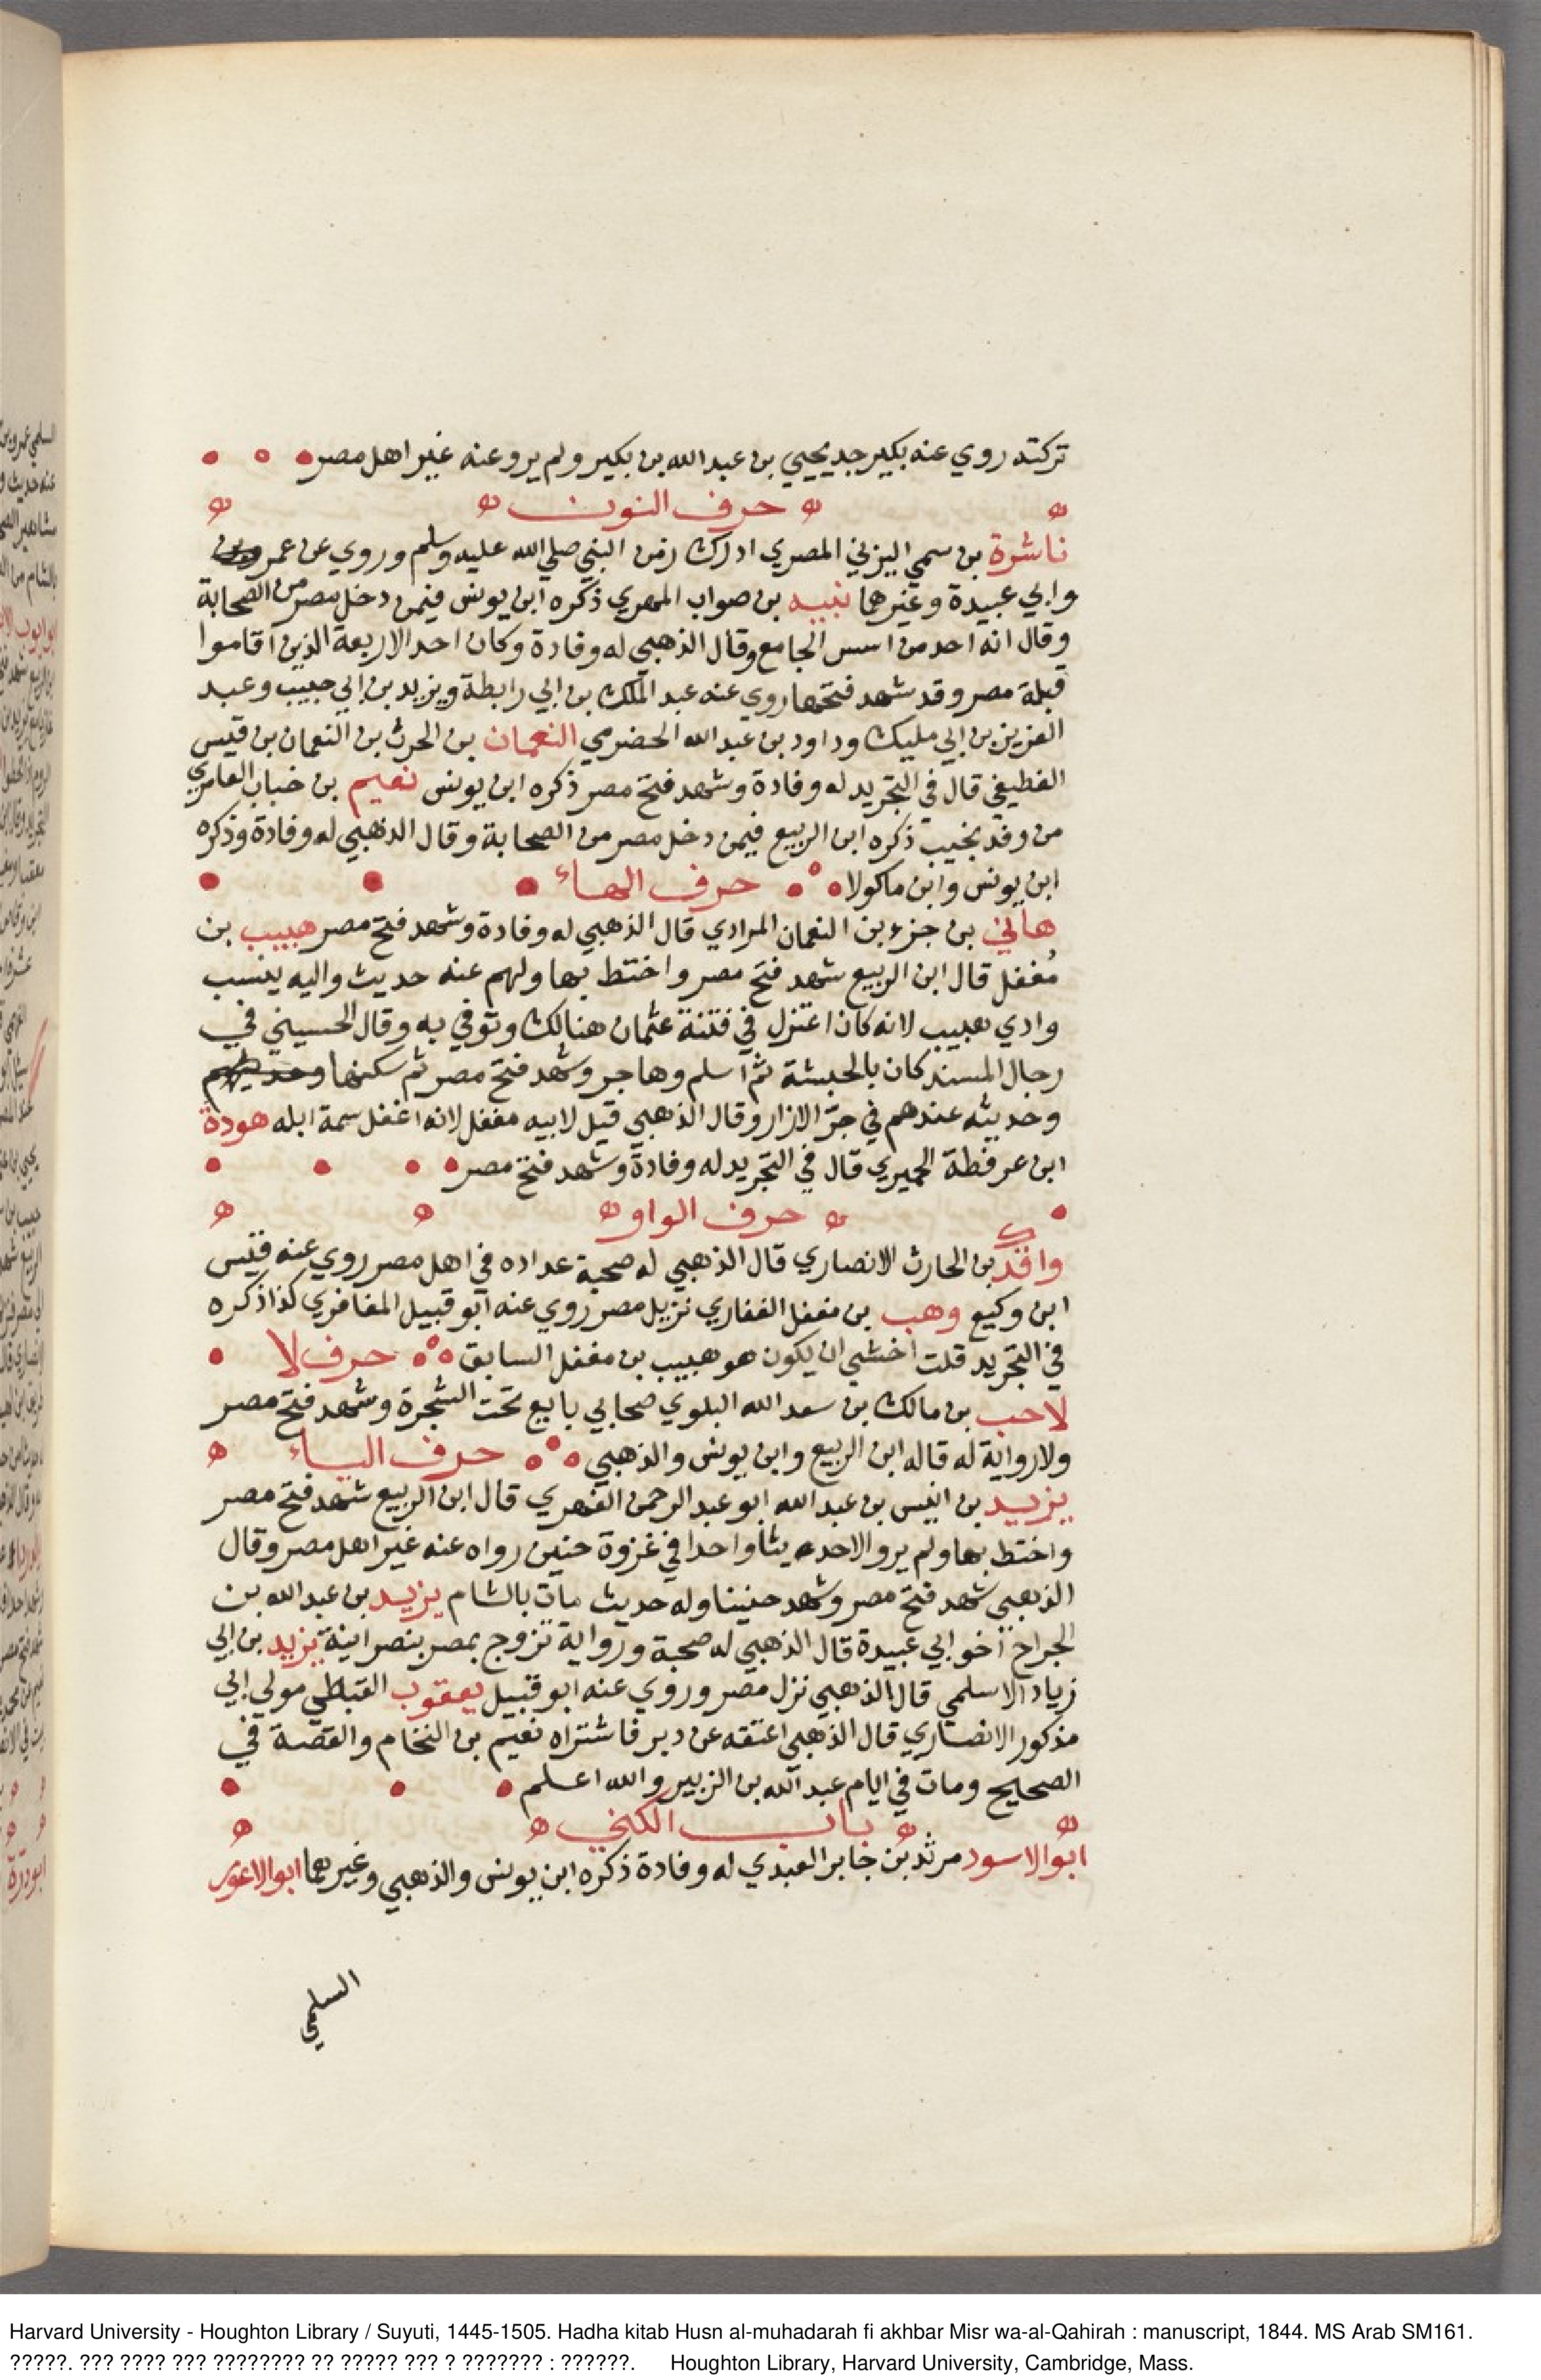 تركته روي عنه بكير جد يحيي بن عبد الله بن بكير ولم يرو عنه غير اهل مصر
حرف النون
ناشرة بن سمي اليزني المصري ادرك زمن النبي صلي الله عليه وسلم وروي عن عمر
وابي عبيدة وغيرهما نبيه بن صواب المهري ذكره ابن يونس فيمن دخل مصر من الصحابة
وقال انه احد من اسس الجامع وقال الذهبي له وفادة وكان احد الاربعة الذين اقاموا
قبلة مصر وقد شهد فتحها روي عنه عبد الملك بن ابي رابطة ويزيد بن ابي حبيب وعبد
العزيز بن ابي مليك وداود بن عبد الله الحضرمي النعمان بن الحرث بن النعمان بن قيس
الغطيفي قال في التجريد له وفادة وشهد فتح مصر ذكره ابن يونس نعيم بن خباب العامري
من وفد بخيب ذكره ابن الربيع فيمن دخل مصر من الصحابة وقال الذهبي له وفادة وذكره
ابن يونس وابن ماكولا حرف الهاء
هاني بن جزء بن النعمان المرادي قال الذهبي له وفادة وشهد فتح مصر هبيب بن
مُغفل قال ابن الربيع شهد فتح مصر واختط بها ولهم عنه حديث واليه ينسب
وادي هبيب لانه كان اعتزل في فتنة عثمان هنالك وتوفي به وقال الحسيني في
رجال المسند كان بالحبشة ثم اسلم وهاجر وشهد فتح مصر ثم سكنها
وحديثه عندهم في جرّ الازار وقال الذهبي قيل لابيه مغفل لانه اغفل سمة ابله هودة
ابن عرفطة الحميري قال في التجريد له وفادة وشهد فتح مصر
حرف الواو
واقد بن الحارث الانصاري قال الذهبي له صحبة عداده في اهل مصر روي عنه قيس
ابن وكيع وهب بن مغفل الغفاري نزيل مصر روي عنه ابو قبيل المغافري كذا ذكره
في التجريد قلت اخشي ان يكون هو هبيب بن مغفل السابق حرف لا
لاحب بن مالك بن سعد الله البلوي صحابي بايع تحت الشجرة وشهد فتح مصر
ولا رواية له قاله ابن الربيع وابن يونس والذهبي حرف الياء
يزيد بن انيس بن عبد الله ابو عبد الرحمن الفهري قال ابن الربيع شهد فتح مصر
واختط بها ولم يرو الا حديثا واحدا في غزوة حنين رواه عنه غير اهل مصر وقال
الذهبي شهد فتح مصر وشهد حنينا وله حديث مات بالشام يزيد بن عبد الله بن
الجراح اخو ابي عبيدة قال الذهبي له صحبة ورواية تزوج بمصر بنصرانية يزيد بن ابي
زياد الاسلمي قال الذهبي نزل مصر وروي عنه ابو قبيل يعقوب القبطي مولي ابي
مذكور الانصاري قال الذهبي اعتقه عن دبر فاشتراه نعيم بن النخام والقصة في
الصحيح ومات في ايام عبد الله بن الزبير والله اعلم
باب الكني
ابو الاسود مرثد بن جابر العبدي له وفادة ذكره ابن يونس والذهبي وغيرهما ابو الاعور
السلمي
Harvard University - Houghton Library / Suyuti, 1445-1505. Hadha kitab Husn al-muhadarah fi akhbar Misr wa-al-Qahirah : manuscript, 1844. MS Arab SM161.
?????. ??? ???? ??? ???????? ?? ????? ??? ? ??????? : ??????. Houghton Library, Harvard University, Cambridge, Mass.